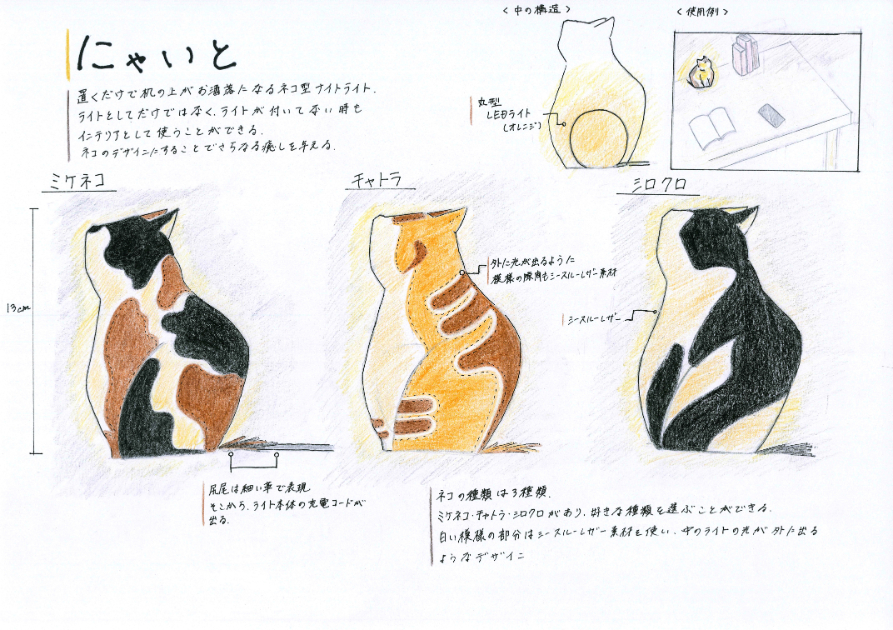 にゃいと
置くだけで机の上がお洒落になるネコ型ナイトライト.
ライトとしてだけではなく、ライトが付いてない時も
インテリアとして使うことができる.
ネコのデザインにすることでさらなる癒しを与える.
<中の構造>
丸型
LEDライト
(オレンジ)
<使用例>
ミケネコ
チャトラ
シロクロ
13cm
外に光が出るように
模様の隙間もシースルーレザー素材
シースルーレザー
尻尾は細い革で表現
そこから、ライト本体の充電コードが
出る.
ネコの種類は3種類.
ミケネコ・チャトラ・シロクロがあり、好きな種類を選ぶことができる.
白い模様の部分はシースルーレザー素材を使い、中のライトの光が外に出る
ようなデザイン